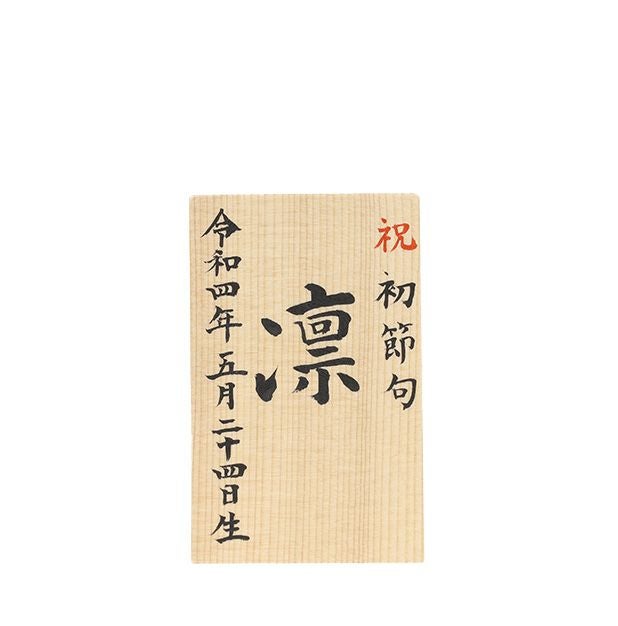 祝初節句
凛
令和四年五月二十四日生